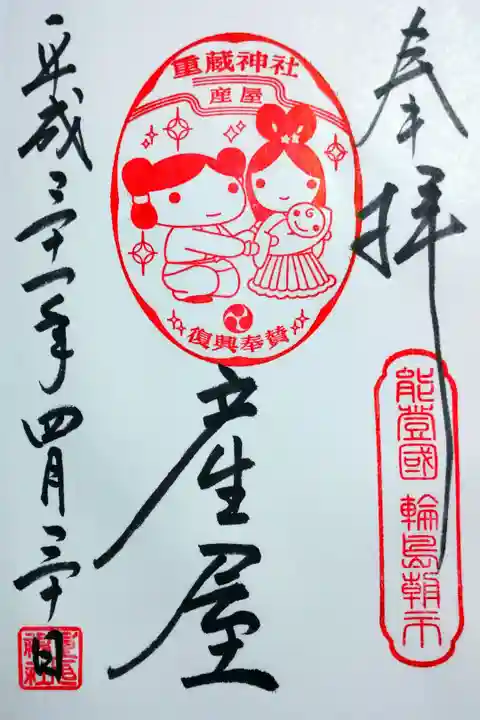 奉拝
能登國 輪島朝市
重蔵神社
産屋
復興奉賛
産屋
平成三十一年四月三十日
重蔵神社